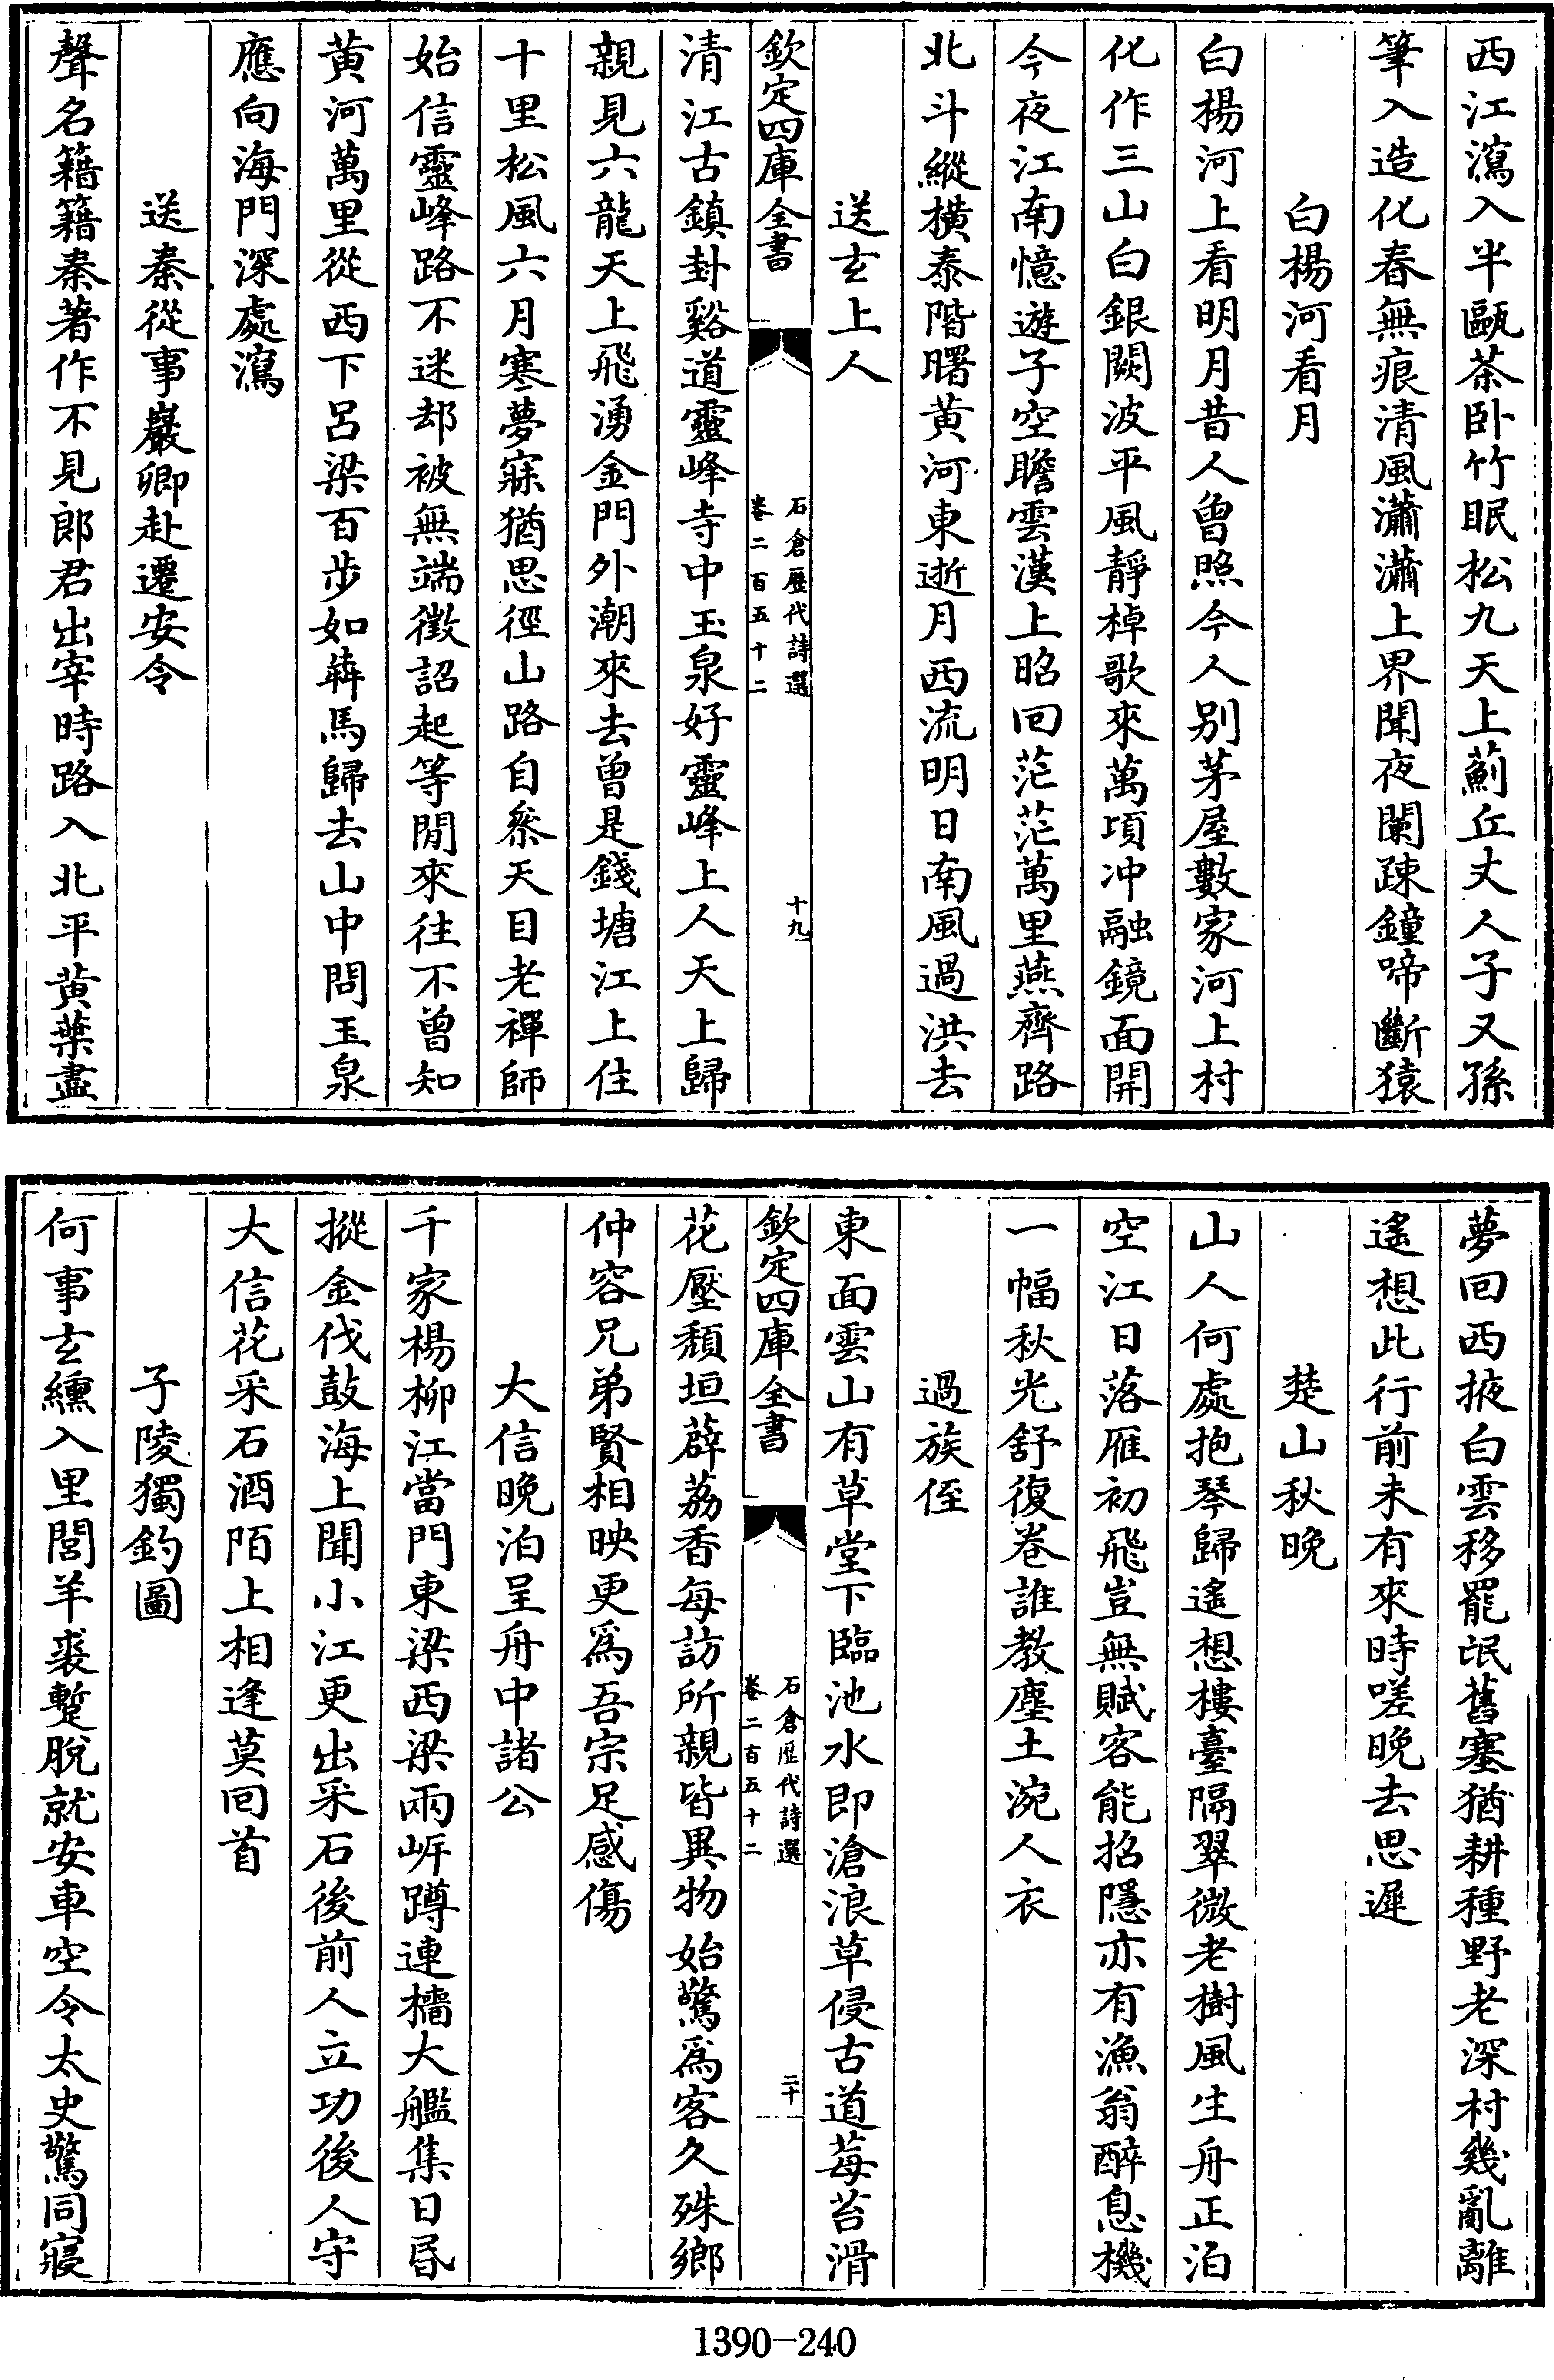 西江瀉入半甌茶卧竹眠松九天上薊丘丈人子又孫
筆入造化春無痕清風瀟瀟上界聞夜闌疎鐘啼斷猿
白楊河看月
白楊河上看明月昔人曾照今人别茅屋數家河上村
化作三山白銀闕波平風靜棹歌來萬頃冲融鏡面開
今夜江南憶遊子空瞻雲漢上昭回茫茫萬里燕齊路
北斗縱橫泰階曙黄河東逝月西流明日南風過洪去
送玄上人
欽定四庫全書
石倉歷代詩選
卷二百五十二
十九
清江古鎮封谿道靈峰寺中玉泉好靈峰上人天上歸
親見六龍天上飛湧金門外潮來去曾是錢塘江上住
十里松風六月寒夢寐猶思徑山路自叅天目老禪師
始信靈峰路不迷却被無端徵詔起等閒來往不曾知
黄河萬里從西下呂梁百步如犇馬歸去山中問玉泉
應向海門深處瀉
送秦從事巖卿赴遷安令
聲名籍籍秦著作不見郎君出宰時路入北平黄葉盡
夢回西掖白雲移罷氓舊塞猶耕種野老深村幾亂離
遙想此行前未有來時嗟晚去思遲
楚山秋晚
山人何處抱琴歸遙想樓臺隔翠微老樹風生舟正泊
空江日落雁初飛豈無賦客能招隱亦有漁翁醉息機
一幅秋光舒復卷誰教塵土涴人衣
過族侄
東面雲山有草堂下臨池水即滄浪草侵古道莓苔滑
欽定四庫全書
石倉歷代詩選
卷二百五十二
二十
花壓頹垣薜荔香每訪所親皆異物始驚爲客久殊鄉
仲容兄弟賢相映更爲吾宗足感傷
大信晚泊呈舟中諸公
千家楊柳江當門東梁西梁兩岍蹲連檣大艦集日昏
摐金伐鼓海上聞小江更出采石後前人立功後人守
大信花采石酒陌上相逢莫回首
子陵獨釣圖
何事玄纁入里閭羊裘蹔脫就安車空令太史驚同寢
1390-240